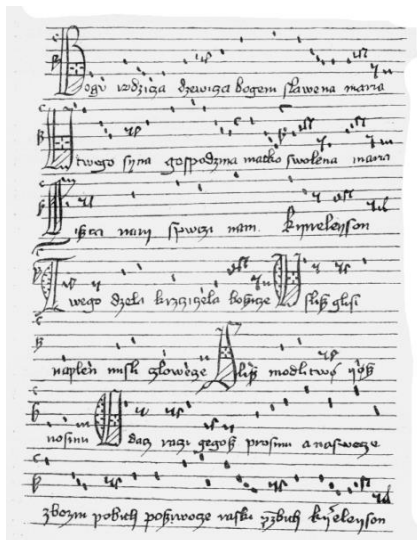 Bogu rodzicza dzewicza bogem slawena maria
U twego syna gospodzina matko swolena maria
Sziszczi nam spwczi nam kyrieleyson
Twego dzela krzcziczela bozicze Uslisz glosi
naplen misli czlowecze Slisz modlitwo yosz
nosimi Oddacz raczi gegosz prosimi a naswecze
zbozni pobith poszywocze raski przebith kyrieleyson